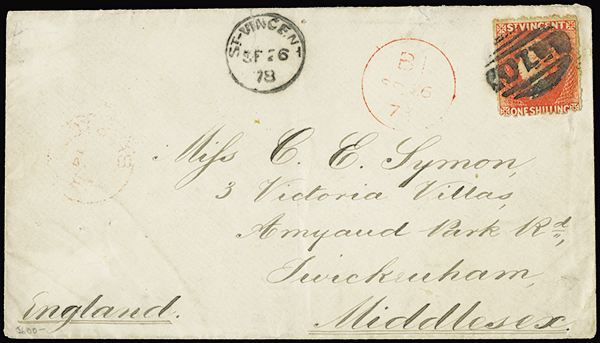 ST. VINCENT
ONE SHILLING
ST-VINCENT
SP 26
78
Miss C. E. Symon,
3 Victoria Villas,
Amyand Park Rd,
Twickenham,
Middlesex.
England.